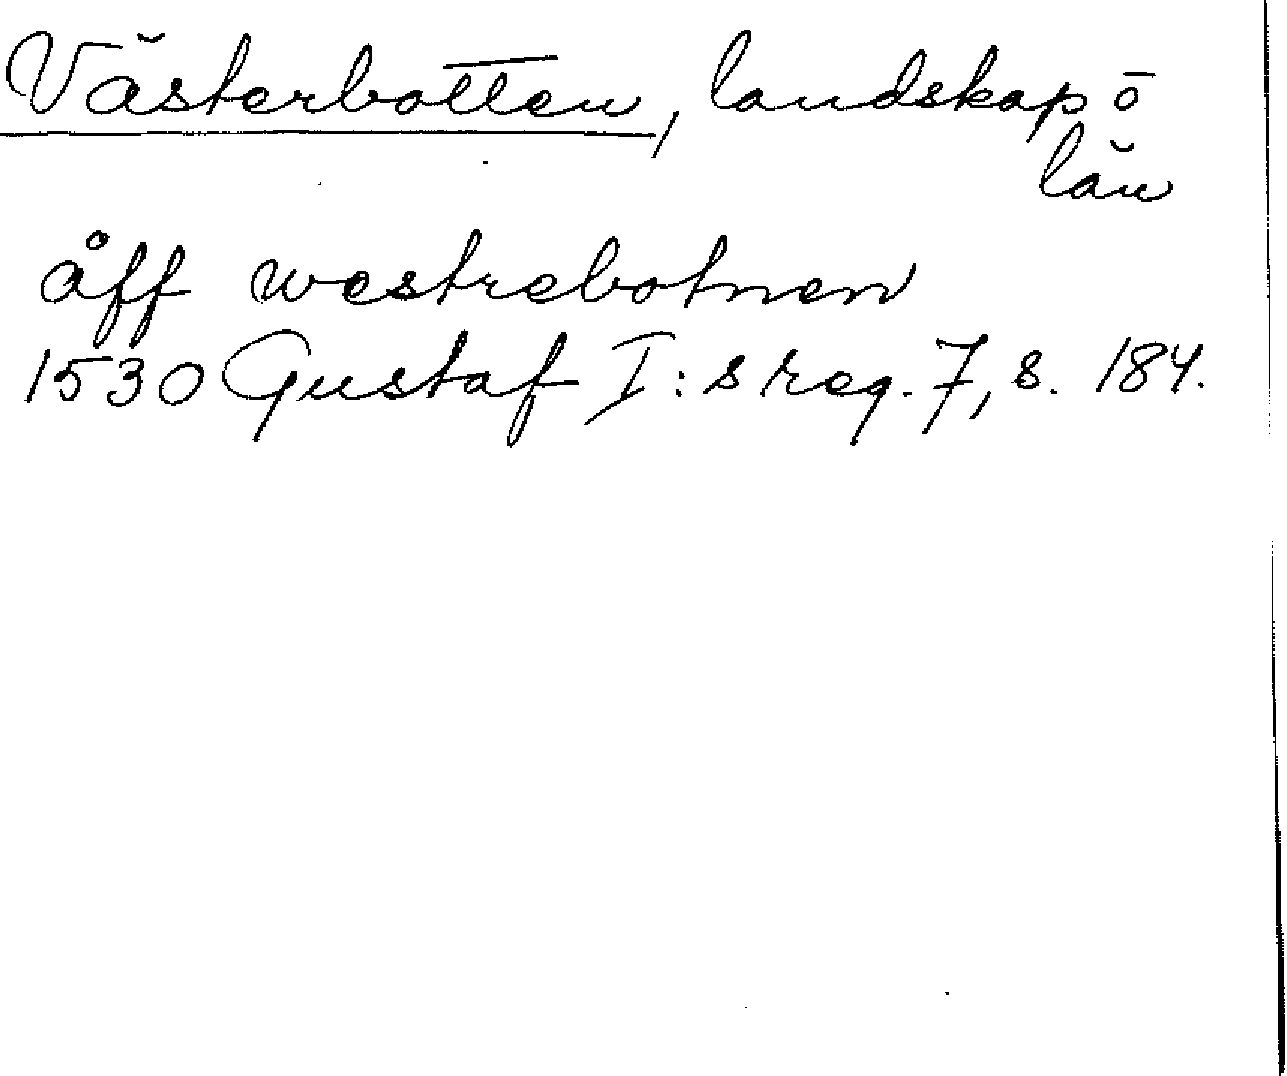 Västerbotten, landskap ō
län
åff westrebotnen
1530 Gustaf I:s reg. 7, s. 184.